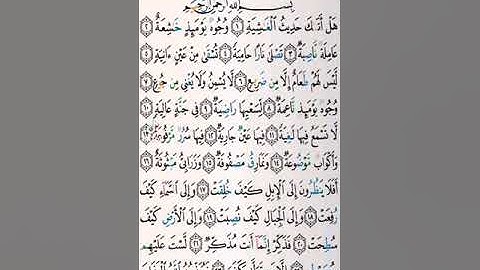 بِسْمِ اللَّهِ الرَّحْمَٰنِ الرَّحِيمِ
هَلْ أَتَىٰكَ حَدِيثُ ٱلْغَٰشِيَةِ ١ وُجُوهٌ يَوْمَئِذٍ خَٰشِعَةٌ ٢
عَامِلَةٌ نَّاصِبَةٌ ٣ تَصْلَىٰ نَارًا حَامِيَةً ٤ تُسْقَىٰ مِنْ عَيْنٍ ءَانِيَةٍ ٥
لَّيْسَ لَهُمْ طَعَامٌ إِلَّا مِن ضَرِيعٍ ٦ لَّا يُسْمِنُ وَلَا يُغْنِى مِن جُوعٍ ٧
وُجُوهٌ يَوْمَئِذٍ نَّاعِمَةٌ ٨ لِّسَعْيِهَا رَاضِيَةٌ ٩ فِى جَنَّةٍ عَالِيَةٍ ١٠
لَّا تَسْمَعُ فِيهَا لَٰغِيَةً ١١ فِيهَا عَيْنٌ جَارِيَةٌ ١٢ فِيهَا سُرُرٌ مَّرْفُوعَةٌ ١٣
وَأَكْوَابٌ مَّوْضُوعَةٌ ١٤ وَنَمَارِقُ مَصْفُوفَةٌ ١٥ وَزَرَابِىُّ مَبْثُوثَةٌ ١٦
أَفَلَا يَنظُرُونَ إِلَى ٱلْإِبِلِ كَيْفَ خُلِقَتْ ١٧ وَإِلَى ٱلسَّمَآءِ كَيْفَ
رُفِعَتْ ١٨ وَإِلَى ٱلْجِبَالِ كَيْفَ نُصِبَتْ ١٩ وَإِلَى ٱلْأَرْضِ كَيْفَ
سُطِحَتْ ٢٠ فَذَكِّرْ إِنَّمَآ أَنتَ مُذَكِّرٌ ٢١ لَّسْتَ عَلَيْهِم